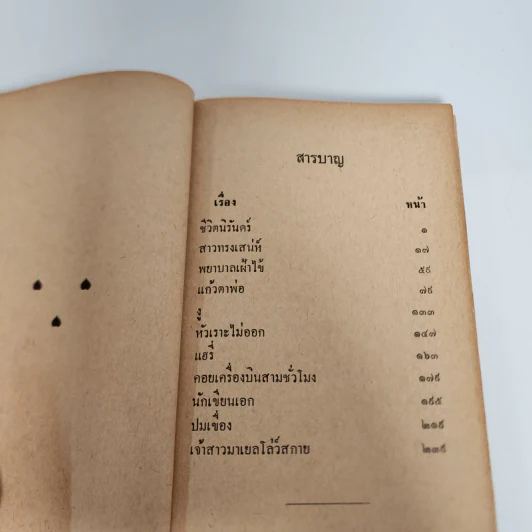 สารบาญ
เรื่อง หน้า
ชีวิตนิรันดร์ ๑
สาวทรงเสน่ห์ ๑๗
พยาบาลเฝ้าไข้ ๕๙
แก้วตาพ่อ ๗๙
งู ๑๓๓
หัวเราะไม่ออก ๑๔๗
แฮรี่ ๑๖๓
คอยเครื่องบินสามชั่วโมง ๑๗๙
นักเขียนเอก ๑๙๕
ปมเขื่อง ๒๑๙
เจ้าสาวมาเยลโล่ว์สกาย ๒๓๙